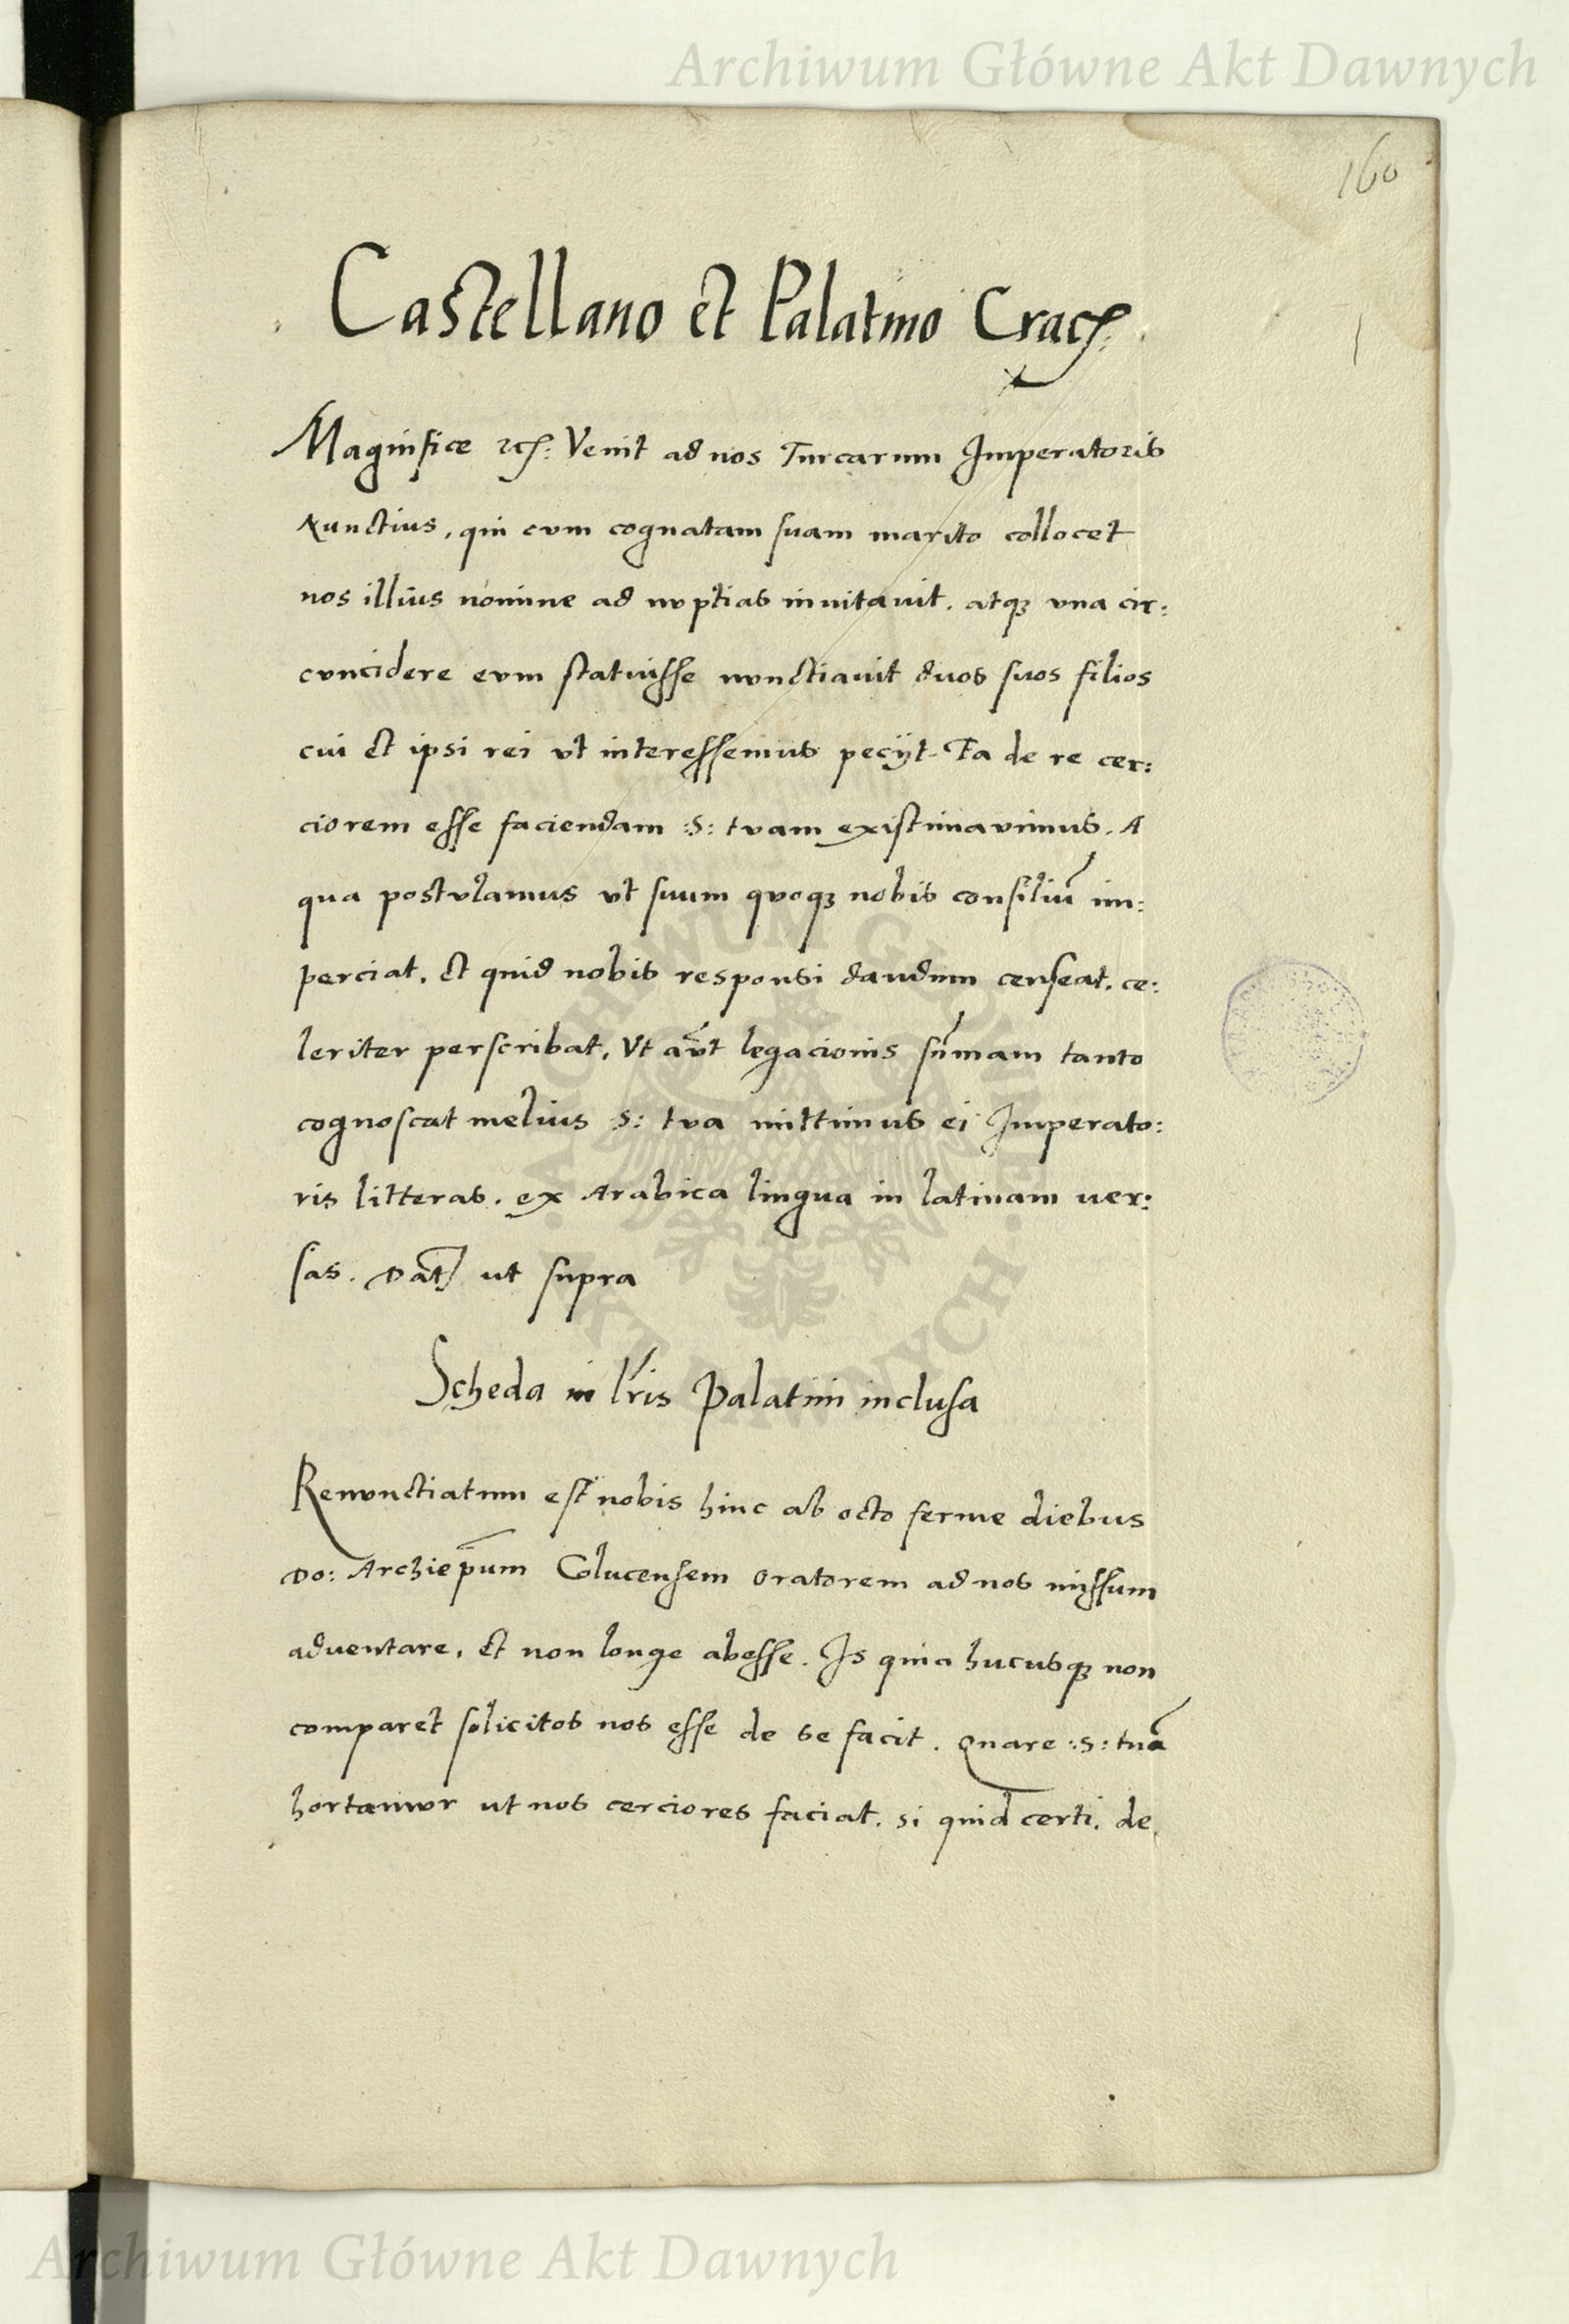 Archiwum Główne Akt Dawnych
160
Castellano et Palatino Crac:
Magnifice etc: Venit ad nos Turcarum Imperatoris
Nunctius, qui cum cognatam suam marito collocet
nos illius nomine ad nuptias invitavit. atq3 una cir:
cuncidere eum statuisse nunctiavit duos suos filios
cui et ipsi rei ut interessemus pecijt. Ea de re cer:
ciorem esse faciendam :S: tuam existimavimus. A
qua postulamus ut suum quoq3 nobis consiliū im:
perciat, et quid nobis responsi dandum censeat. ce:
leriter perscribat, Ut aūt legacionis sūmam tanto
cognoscat melius S: tua mittimus ei Imperato:
ris litteras. ex Arabica lingua in latinam ver:
sas. Dat ut supra
Scheda in lris Palatini inclusa
Renunctiatum est nobis hinc ab octo ferme diebus
Do: Archiepūm Colucensem oratorem ad nos missum
adventare, et non longe abesse. Is quia hucusq3 non
comparet solicitos nos esse de se facit. Quare :S: tuā
hortamur ut nos cerciores faciat. si quid certi. de
ARCHIWUM GŁÓWNE AKT DAWNYCH
Archiwum Główne Akt Dawnych